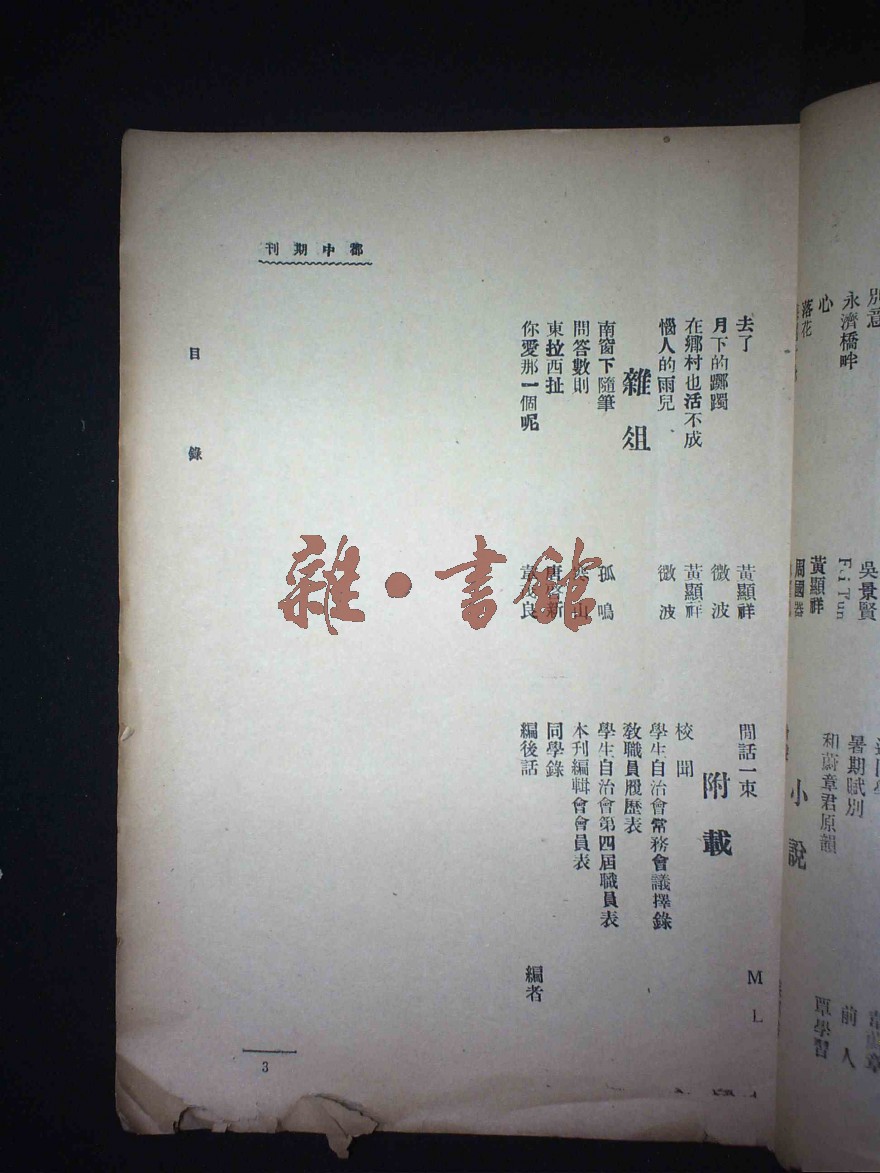 刊期中都
目錄
去了 黃顯祥
月下的躑躅 微波
在鄉村也活不成 黃顯祥
惱人的雨兒 微波
雜俎
南窗下隨筆 孤鳴
問答數則 山
東拉西扯 唐 新
你愛那一個呢 良
閒話一束 M L
附載
校聞
學生自治會常務會議擇錄
教職員履歷表
學生自治會第四屆職員表
本刊編輯會會員表
同學錄
編後話 編者
3
雜・書館
別意 吳景賢
永濟橋畔 Fei Tun
心 黃顯祥
落花 周國器
小說
暑期賦別 前人
和蔚章君原韻 覃學習
韋蔚章